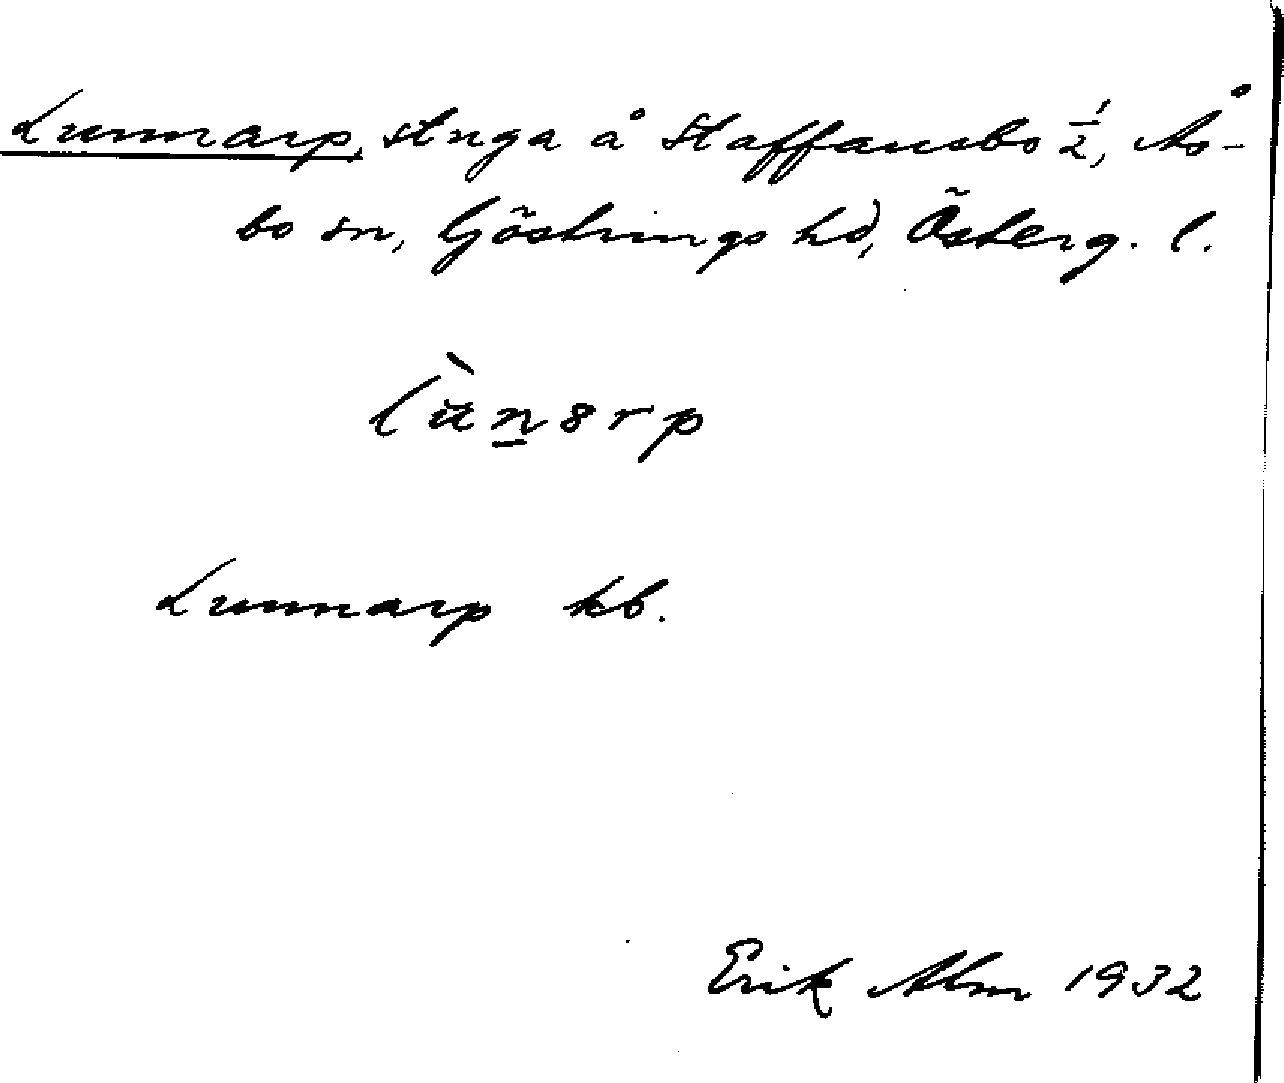 Lunnarp, stuga å Staffansbo 1/2, Ås-
bo sn, Göstrings hd, Österg. l.
Lunnarp kb.
Erik Alm 1932